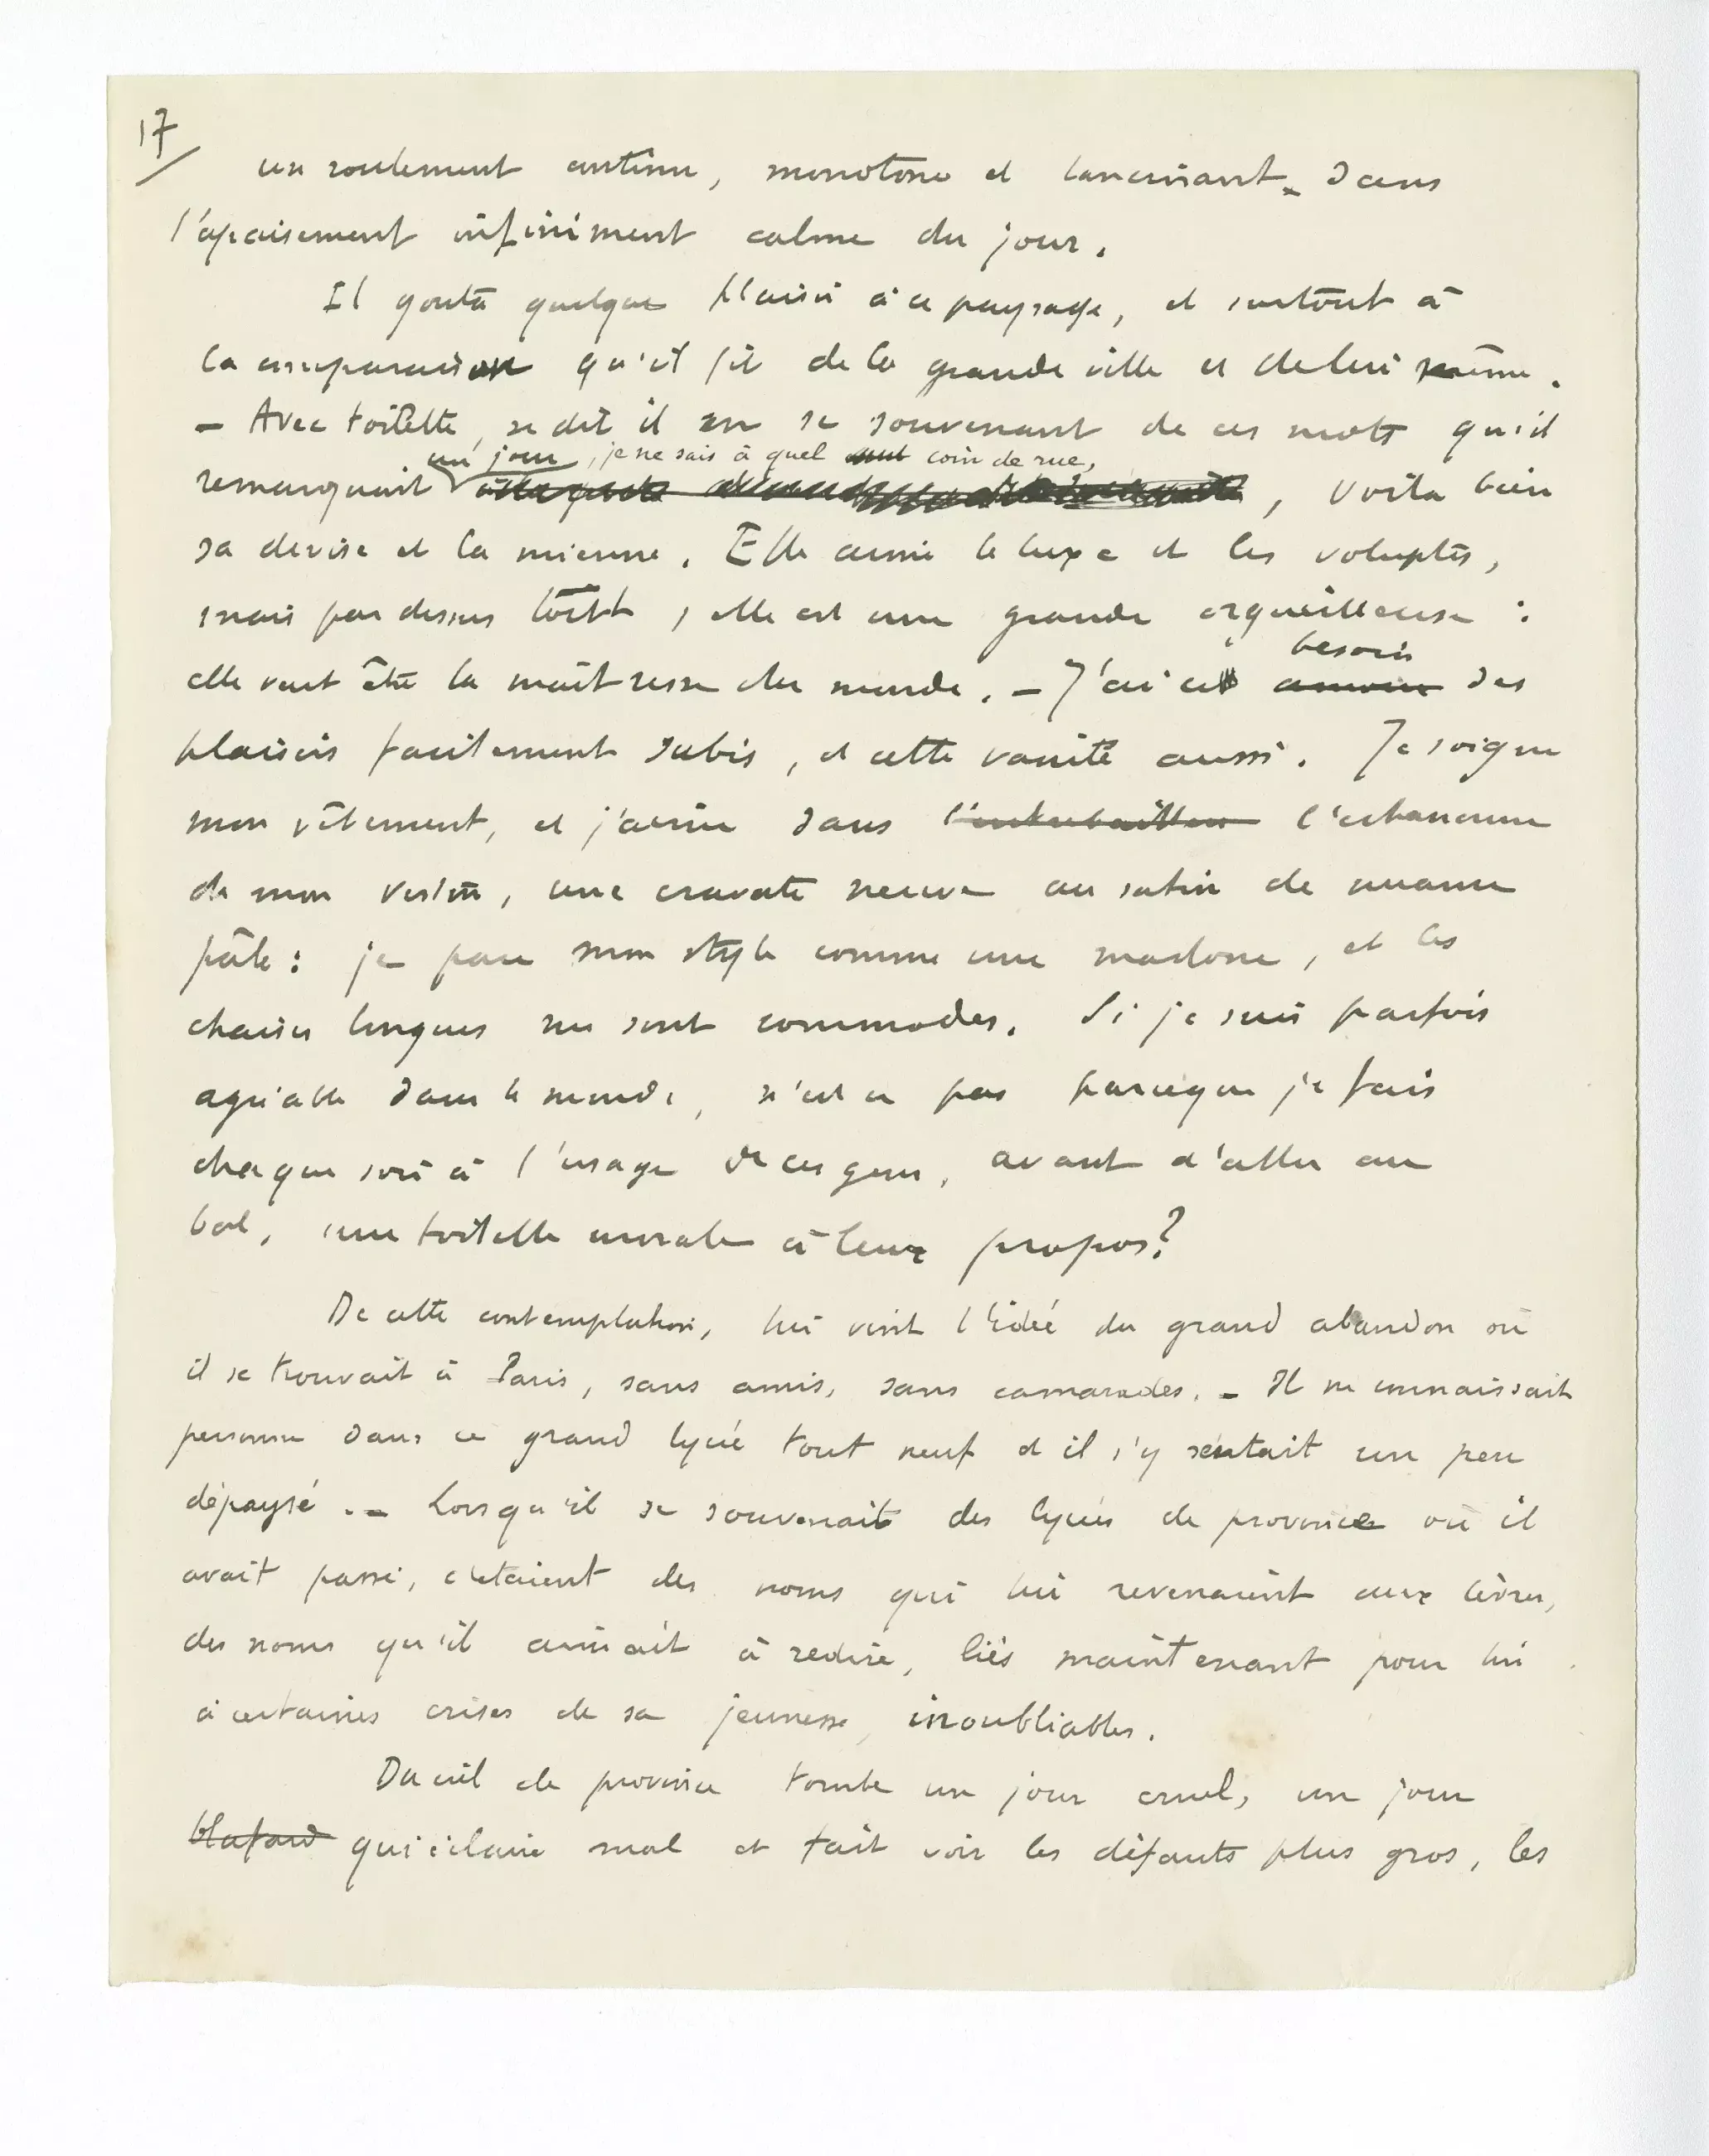 17
un roulement continu, monotone et lancinant_ dans
l'apaisement infiniment calme du jour.
Il goûta quelque plaisir à ce paysage, et surtout à
la comparaison qu'il fit de la grande ville et de lui même.
– Avec toilette, se dit il en se souvenant de ces mots qu'il
un jour, je ne sais à quel coin de rue,
remarquait , voilà bien
sa devise et la mienne. Elle aime le luxe et les voluptés,
mais par dessus tout, elle est une grande orgueilleuse :
besoin
elle veut être la maîtresse du monde. – J'ai ce amour des
plaisirs facilement subis, et cette vanité aussi. Je soigne
mon vêtement, et j'aime dans l'échancrure
de mon veston, une cravate neuve au satin de nuance
pâle : je pare mon style comme une madone, et les
chaises longues me sont commodes. Si je suis parfois
agréable dans le monde, n'est ce pas parceque je fais
chaque soir à l'usage de ces gens, avant d'aller au
bal, une toilette morale à leur propos?
De cette contemplation, lui vint l'idée du grand abandon où
il se trouvait à Paris, sans amis, sans camarades. – Il ne connaissait
personne dans ce grand lycée tout neuf et il s'y sentait un peu
dépaysé. – Lorsqu'il se souvenait des lycées de province où il
avait passé, c'étaient des noms qui lui revenaient aux lèvres,
des noms qu'il aimait à redire, liés maintenant pour lui
à certaines crises de sa jeunesse, inoubliables.
Du ciel de province tombe un jour cruel, un jour
blafard qui éclaire mal et fait voir les défauts plus gros, les